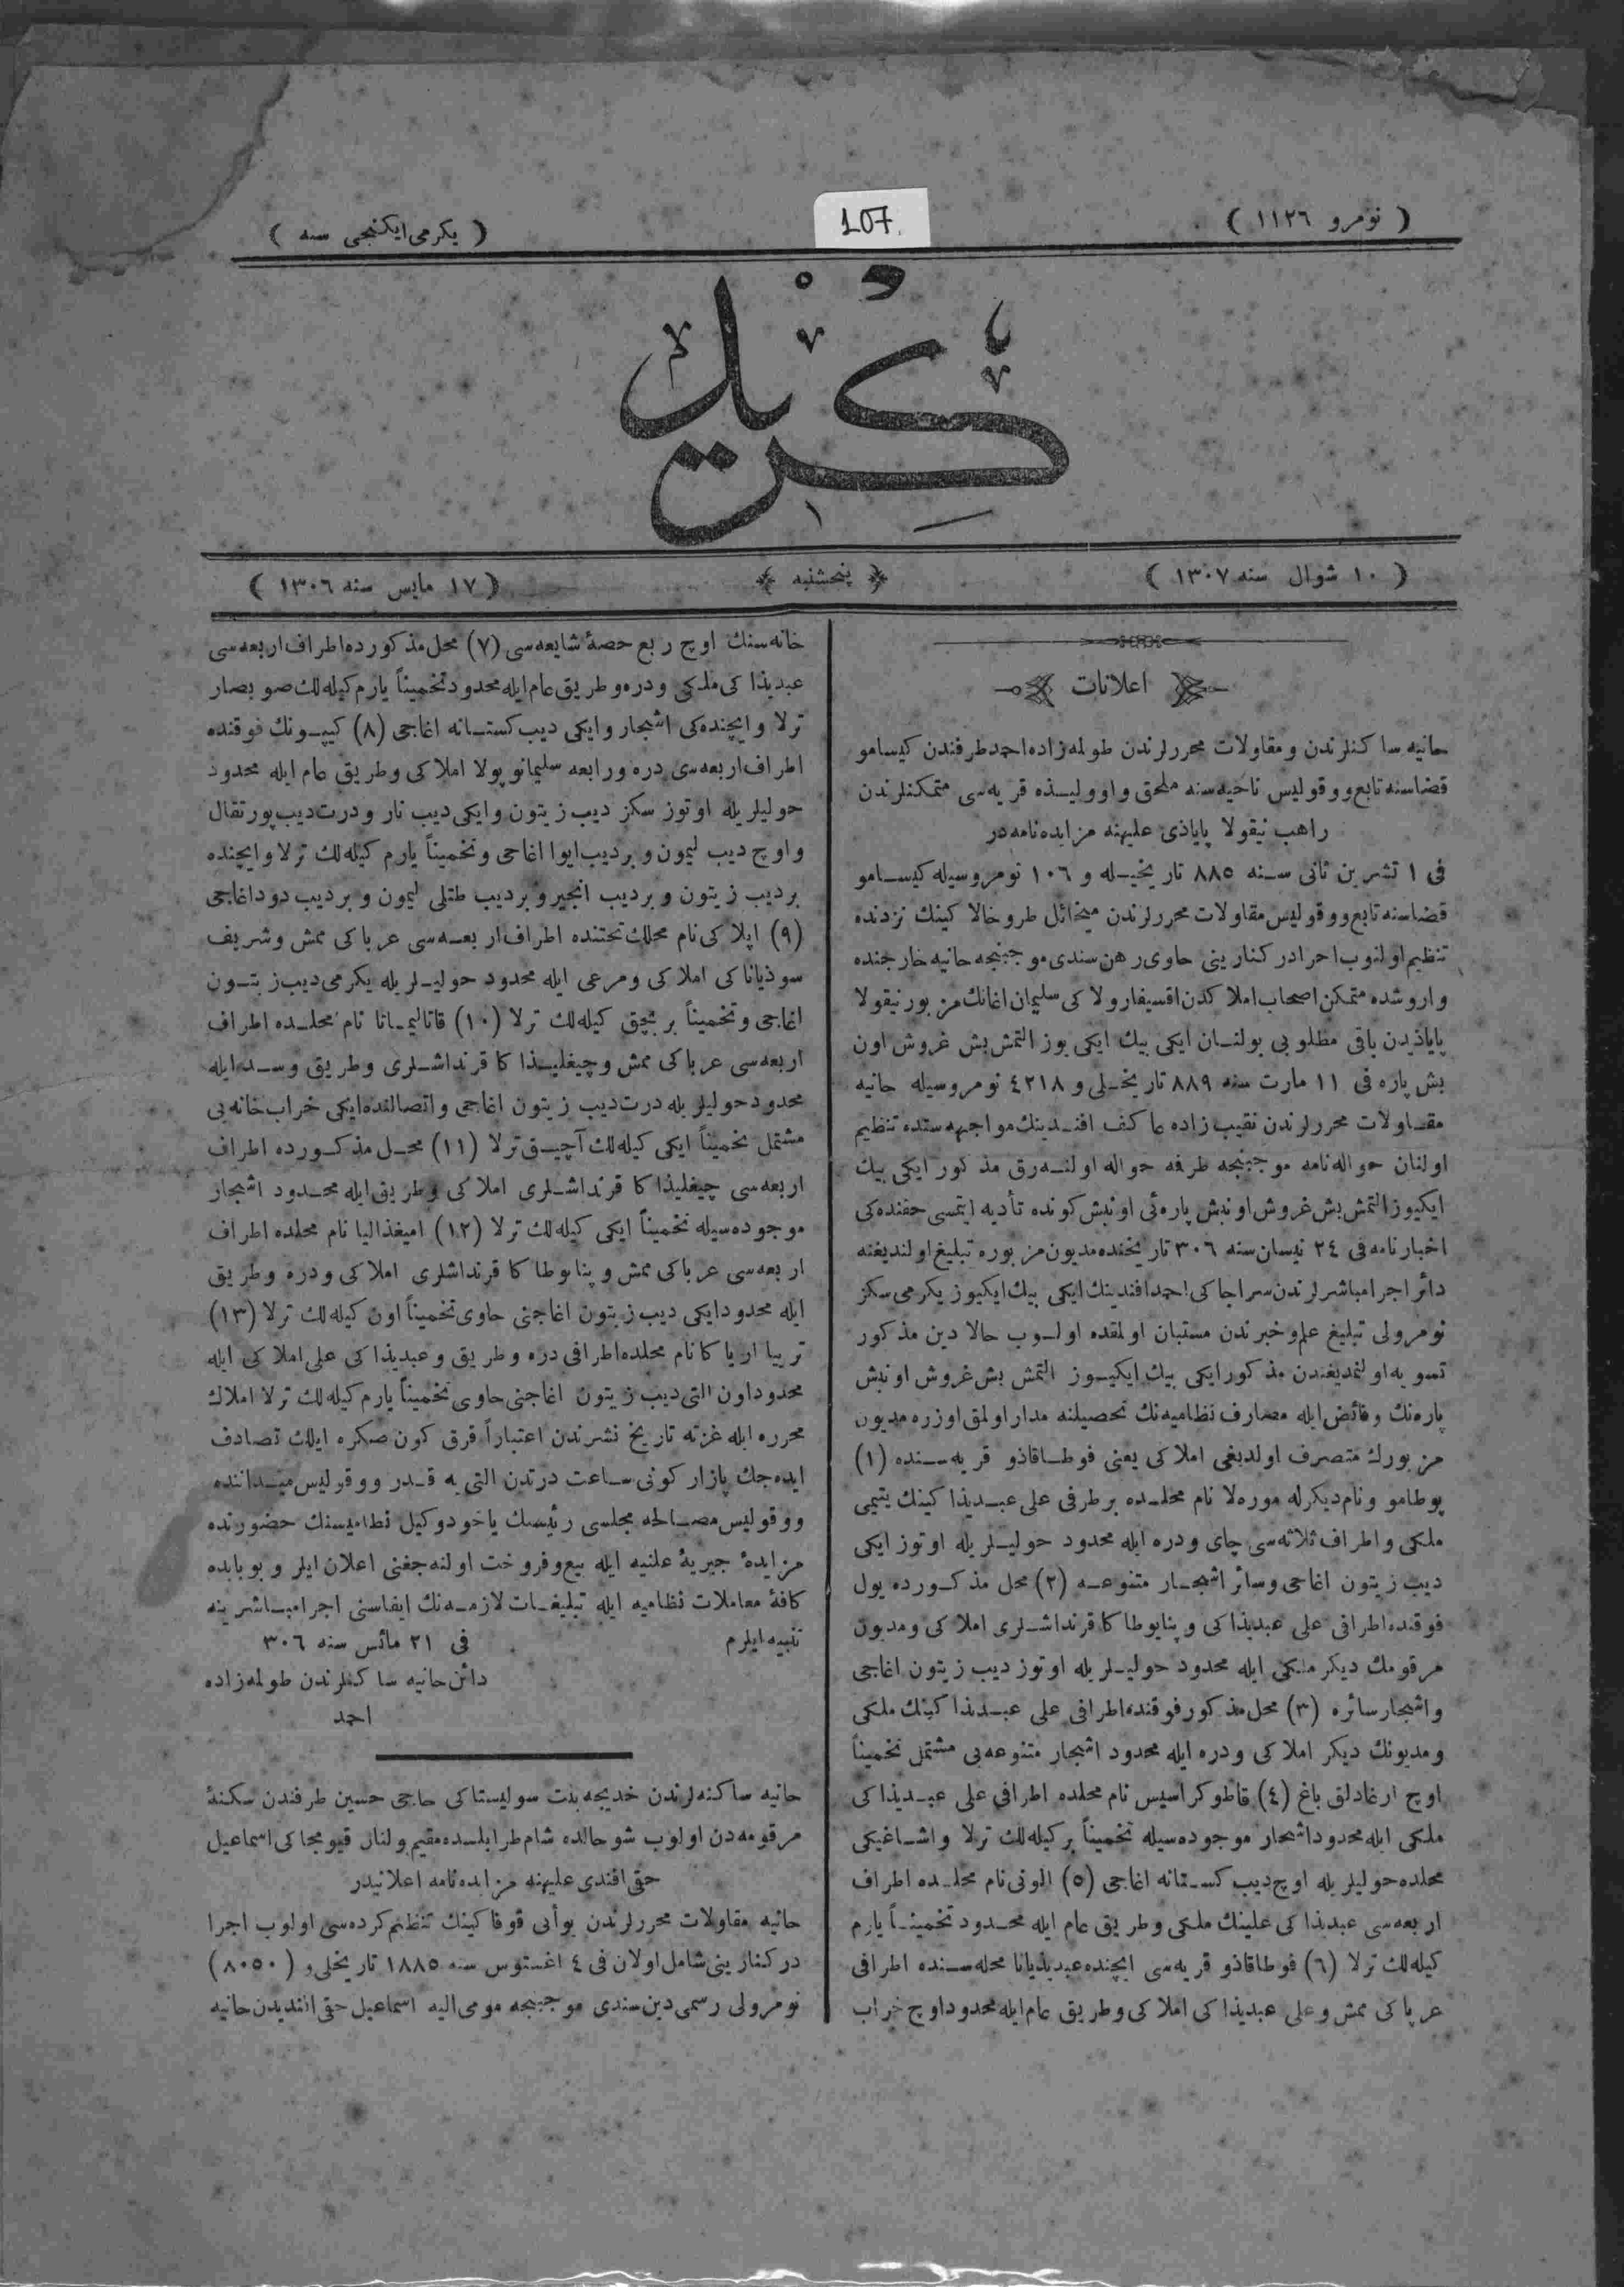 ( نومرو ١١٢٦ )
107
( یكرمی ایكنجی سنه )
كرید
( ١٠ شوال سنه ١٣٠٧ )
پنجشنبه
( ١٧ مایس سنه ١٣٠٦ )
اعلانات
حانیه ساكنلرندن ومقاولات محررلرندن طولمه‌زاده احمد طرفندن كیسامو
قضاسنه تابع ووقولیس ناحیه‌سنه ملحق واوولیـذه قریه‌سی متمكنلرندن
راهب نیقولا پاپاذی علیهنه مزایده‌نامه‌در
فی ١ تشرین ثانی سـنه ٨٨٥ تاریخیـله و ١٠٦ نومروسیله كیسـامو
قضاسنه تابع ووقولیس مقاولات محررلرندن میخائل طروخالا كینك نزدنده
تنظیم اولنوب اجرا دركنارینی حاوی رهن سندی موجبنجه حانیه خارجنده
واروشده متمكن اصحاب املاكدن اقسیفارولاكی سلیمان اغانك مزبور نیقولا
پاپاذیدن باقی مطلوبی بولنـان ایكی بیك ایكی یوز التمش بش غروش اون
بش پاره فی ١١ مارت سنه ٨٨٩ تاریخـلی و ٤٢١٨ نومروسیله حانیه
مقـاولات محررلرندن نقیب زاده عاكف افنـدینك مواجهه‌سنده تنظیم
اولنان حواله‌نامه موجبنجه طرفه حواله اولنـه‌رق مذكور ایكی بیك
ایكیوز التمش بش غروش اونبش پاره‌ئی اونبش كونده تأدیه ایتمسی حقنده‌كی
اخبارنامه فی ٢٤ نیسان سنه ٣٠٦ تاریخنده مدیون مزبوره تبلیغ اولندیغنه
دائر اجرا مباشرلرندن سراجاكی احمد افندینك ایكی بیك ایكیوز یكرمی سكز
نومرولی تبلیغ علم وخبرندن مستبان اولمقده اولـوب حالا دین مذكور
تسویه اولنمدیغندن مذكور ایكی بیك ایكیـوز التمش بش غروش اونبش
پاره‌نك وفائض ایله مصارف نظامیه‌نك تحصیلنه مدار اولمق اوزره مدیون
مزبورك متصرف اولدیغی املاكی یعنی فوطـاقاذو قریه‌سـنده (١)
پوطامو ونام دیكرله موره‌لا نام محلـده برطرفی علی عبـدیذا كینك یتیمی
ملكی واطراف ثلاثه‌سی چای ودره ایله محدود حولیـلریله اوتوز ایكی
دیب زیتون اغاجی وسائر اشجـار متنوعـه (٢) محل مذكـورده یول
فوقنده اطرافی علی عبدیذاكی وپنایوطا كا قرنداشـلری املاكی ومدیون
مرقومك دیكر ملـكی ایله محدود حولیـلریله اوتوز دیب زیتون اغاجی
واشجار سائره (٣) محل مذكور فوقنده اطرافی علی عبـدیذا كینك ملكی
ومدیونك دیكر املاكی ودره ایله محدود اشجار متنوعه‌یی مشتمل تخمیناً
اوچ ارغادلق باغ (٤) قاطوكراسیس نام محلده اطرافی علی عبـدیذاكی
ملكی ایله محدود اشجار موجوده‌سیله تخمیناً بركیله‌لك ترلا واشـاغیكی
محلده حولیلریله اوچ دیب كسـتانه اغاجی (٥) الونی نام محلـده اطراف
اربعه‌سی عبدیذاكی علینك ملكی وطریق عام ایله محـدود تخمینـاً یارم
كیله‌لك ترلا (٦) فوطاقاذو قریه‌سی ایچنده عبدیذیانا محله‌سـنده اطرافی
عرپاكی ممش وعلی عبدیذاكی املاكی وطریق عام ایله محدود اوچ خراب
خانه‌سنك اوچ ربع حصهٔ شایعه‌سی (٧) محل مذكورده اطراف اربعه‌سی
عبدیذا كی ملكی ودره وطریق عام ایله محدود تخمیناً یارم كیله‌لك صو بصار
ترلا وایچنده‌كی اشجار وایكی دیب كستـانه اغاجی (٨) كیپـونك فوقنده
اطراف اربعه‌سی دره ورابعه سلیمانوپولا املاكی وطریق عام ایله محدود
حولیلریله اوتوز سكز دیب زیتون وایكی دیب نار ودرت دیب پورتقال
واوچ دیب لیمون وبردیب ایوا اغاجی وتخمیناً یارم كیله‌لك ترلا وایچنده
بردیب زیتون وبردیب انجیر وبردیب طتلی لیمون وبردیب دود اغاجی
(٩) اپلاكی نام محلك تحتنده اطراف اربعـه‌سی عرباكی ممش وشریف
سوذیاناكی املاكی ومرعی ایله محدود حولیـلریله یكرمی دیب زیتـون
اغاجی وتخمیناً بر بچق كیله‌لك ترلا (١٠) قاتالیمـاتا نام محلـده اطراف
اربعه‌سی عرباكی ممش وچیغلیـذا كا قرنداشـلری وطریق وسـد ایله
محدود حولیلریله درت دیب زیتون اغاجی واتصالنده ایكی خراب خانه‌یی
مشتمل تخمیناً ایكی كیله‌لك آچیـق ترلا (١١) محـل مذكـورده اطراف
اربعه‌سی چیغلیذا كا قرنداشـلری املاكی وطریق ایله محـدود اشجار
موجوده‌سیله تخمیناً ایكی كیله‌لك ترلا (١٢) امیغذالیا نام محلده اطراف
اربعه‌سی عرباكی ممش وپنایوطا كا قرنداشلری املاكی ودره وطریق
ایله محدود ایكی دیب زیتون اغاجنی حاوی تخمیناً اون كیله‌لك ترلا (١٣)
تریبا اریا كا نام محلده اطرافی دره وطریق وعبدیذاكی علی املاكی ایله
محدود اون التی دیب زیتون اغاجنی حاوی تخمیناً یارم كیله‌لك ترلا املاك
محرره ایله غزته تاریخ نشرندن اعتباراً قرق كون صكره ایلك تصادف
ایده‌جك پازار كونی سـاعت درتدن التی‌یه قـدر ووقولیس میـداننده
ووقولیس مصـالحه مجلسی رئیسنك یاخود وكیل نظامیسنك حضورنده
مزایدهٔ جبریهٔ علنیه ایله بیع وفروخت اولنه‌جغنی اعلان ایلر وبوبابده
كافهٔ معاملات نظامیه ایله تبلیغـات لازمـه‌نك ایفاسنی اجرا مبـاشرینه
تنبیه ایلرم فی ٢١ مائس سنه ٣٠٦
دائن حانیه ساكنلرندن طولمه‌زاده
احمد
حانیه ساكنه‌لرندن خدیجه بنت سولیستاكی حاجی حسین طرفندن سكنهٔ
مرقومه‌دن اولوب شوحالده شام طرابلسـده مقیم ولنان قیومجاكی اسماعیل
حقی افندی علیهنه مزایده‌نامه اعلانیدر
حانیه مقاولات محررلرندن یوأنی قوفاكینك تنظیم كرده‌سی اولوب اجرا
دركنارینی شامل اولان فی ٤ اغستوس سنه ١٨٨٥ تاریخلی و (٨٠٥٠)
نومرولی رسمی دین سندی موجبنجه مومی الیه اسماعیل حقی افندیدن حانیه